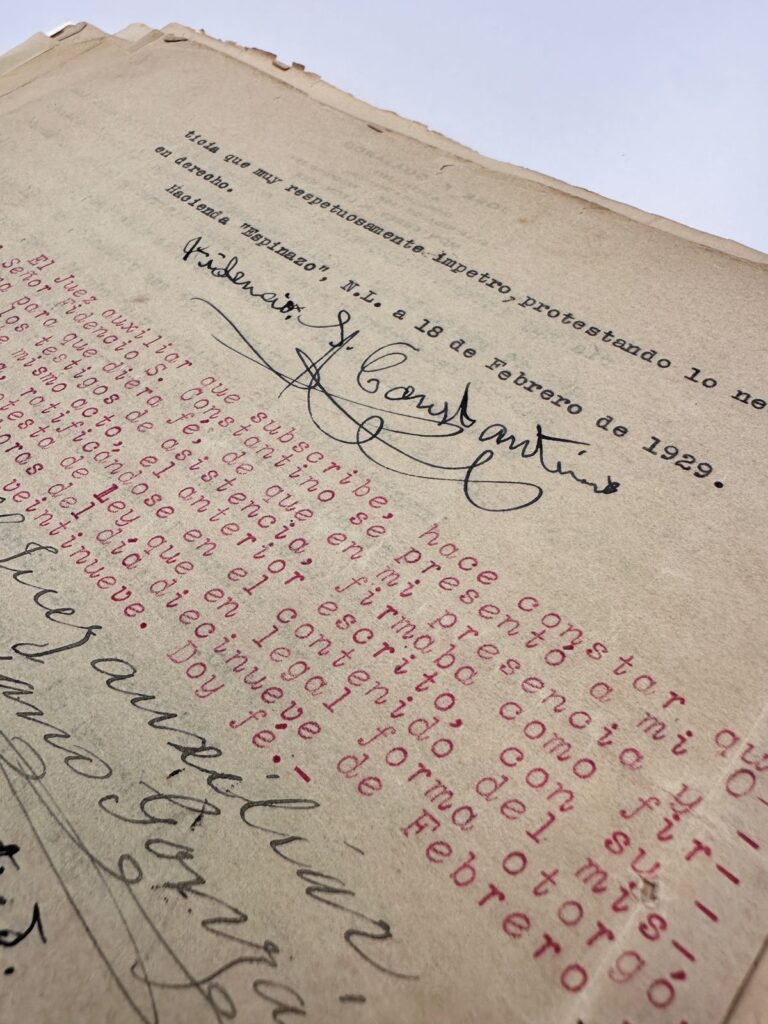 ticia que muy respetuosamente impetro, protestando lo ne
en derecho.
Hacienda "Espinazo", N.L. a 18 de Febrero de 1929.
Fidencio S. Constantino
El Juez auxiliar que subscribe, hace constar qu
Señor Fidencio S. Constantino se presentó a mi O-
na para que diera fé, de que en mi presencia y -
los testigos de asistencia, firmaba como fir-
e mismo acto, el anterior escrito, con su -
a, ratificándose en el contenido del mis-
otesta de Ley que en legal forma otorgó
oras del día diecinueve de Febrero
veintinueve. Doy fé.-
Juez auxiliar
ano Gonzá